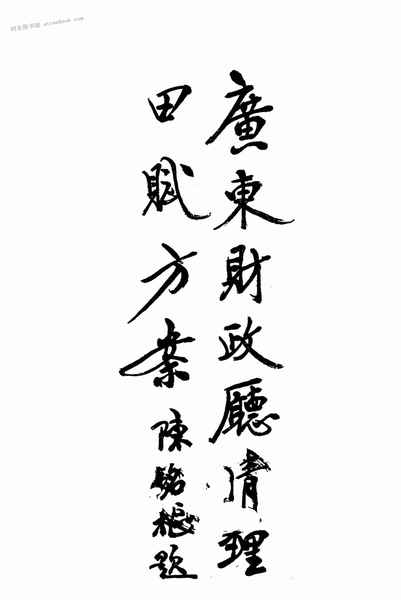 廣東財政廳清理
田賦方案
陳銘樞題